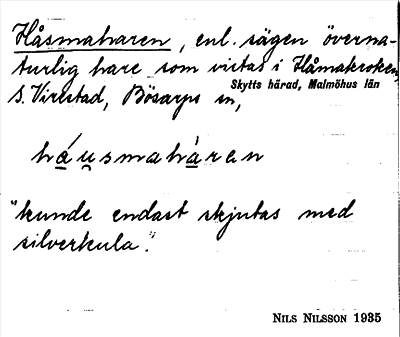 Håsmaharen, enl. sägen överna-
turlig hare som vistas i Håmakroken,
Skytts härad, Malmöhus län
S. Virestad, Bösarps sn,
háu̯smahàran
"kunde endast skjutas med
silverkula".
NILS NILSSON 1935